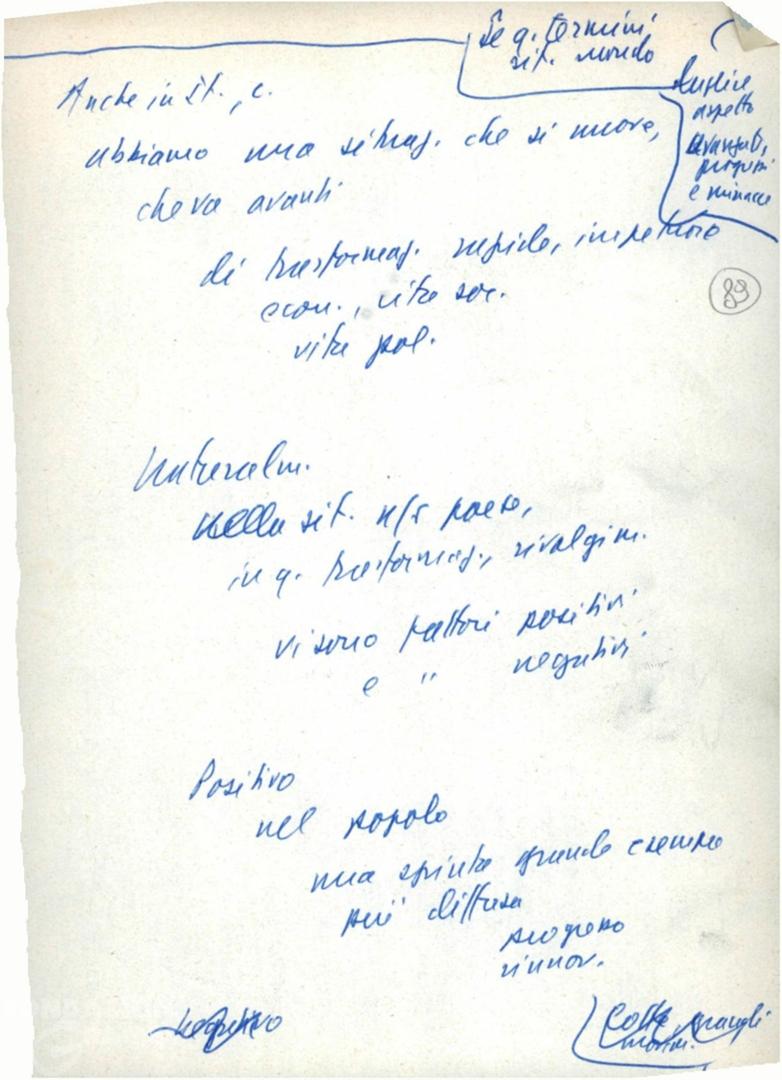 Se q. termini
sit. mondo
Duplice
aspetto
avanzati,
progressi
e minacce
Anche in It., c.
abbiamo una situaz. che si muove,
che va avanti
di trasformaz. rapide, impetuose
econ., vita soc.
vita pol.
89
Naturalm.
nella sit. n/s paese,
in q. trasformaz., rivolgim.
vi sono fattori positivi
e " negativi
Positivo
nel popolo
una spinta grande e sempre
più diffusa
progresso
rinnov.
Negativo
grandi
movim.